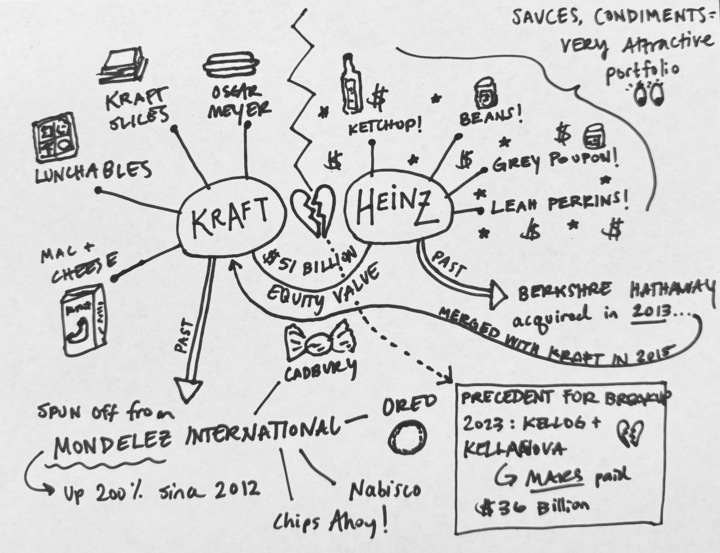 SAUCES, CONDIMENTS =
VERY Attractive
portfolio
KRAFT
SLICES
OSCAR
MEYER
LUNCHABLES
MAC +
CHEESE
KRAFT
KETCHUP!
$
BEANS!
$
$
GREY POUPON!
$
LEAH PERKINS!
$
$
HEINZ
$51 BILLION
EQUITY VALUE
PAST
BERKSHRE HATHAWAY
acquired in 2013...
MERGED WITH KRAFT IN 2015
PAST
SPUN OFF from
MONDELEZ INTERNATIONAL
Up 200% since 2012
CADBURY
OREO
Nabisco
Chips Ahoy!
PRECEDENT FOR BREAKUP
2023: KELLOG +
KELLANOVA
MARS paid
$36 Billion